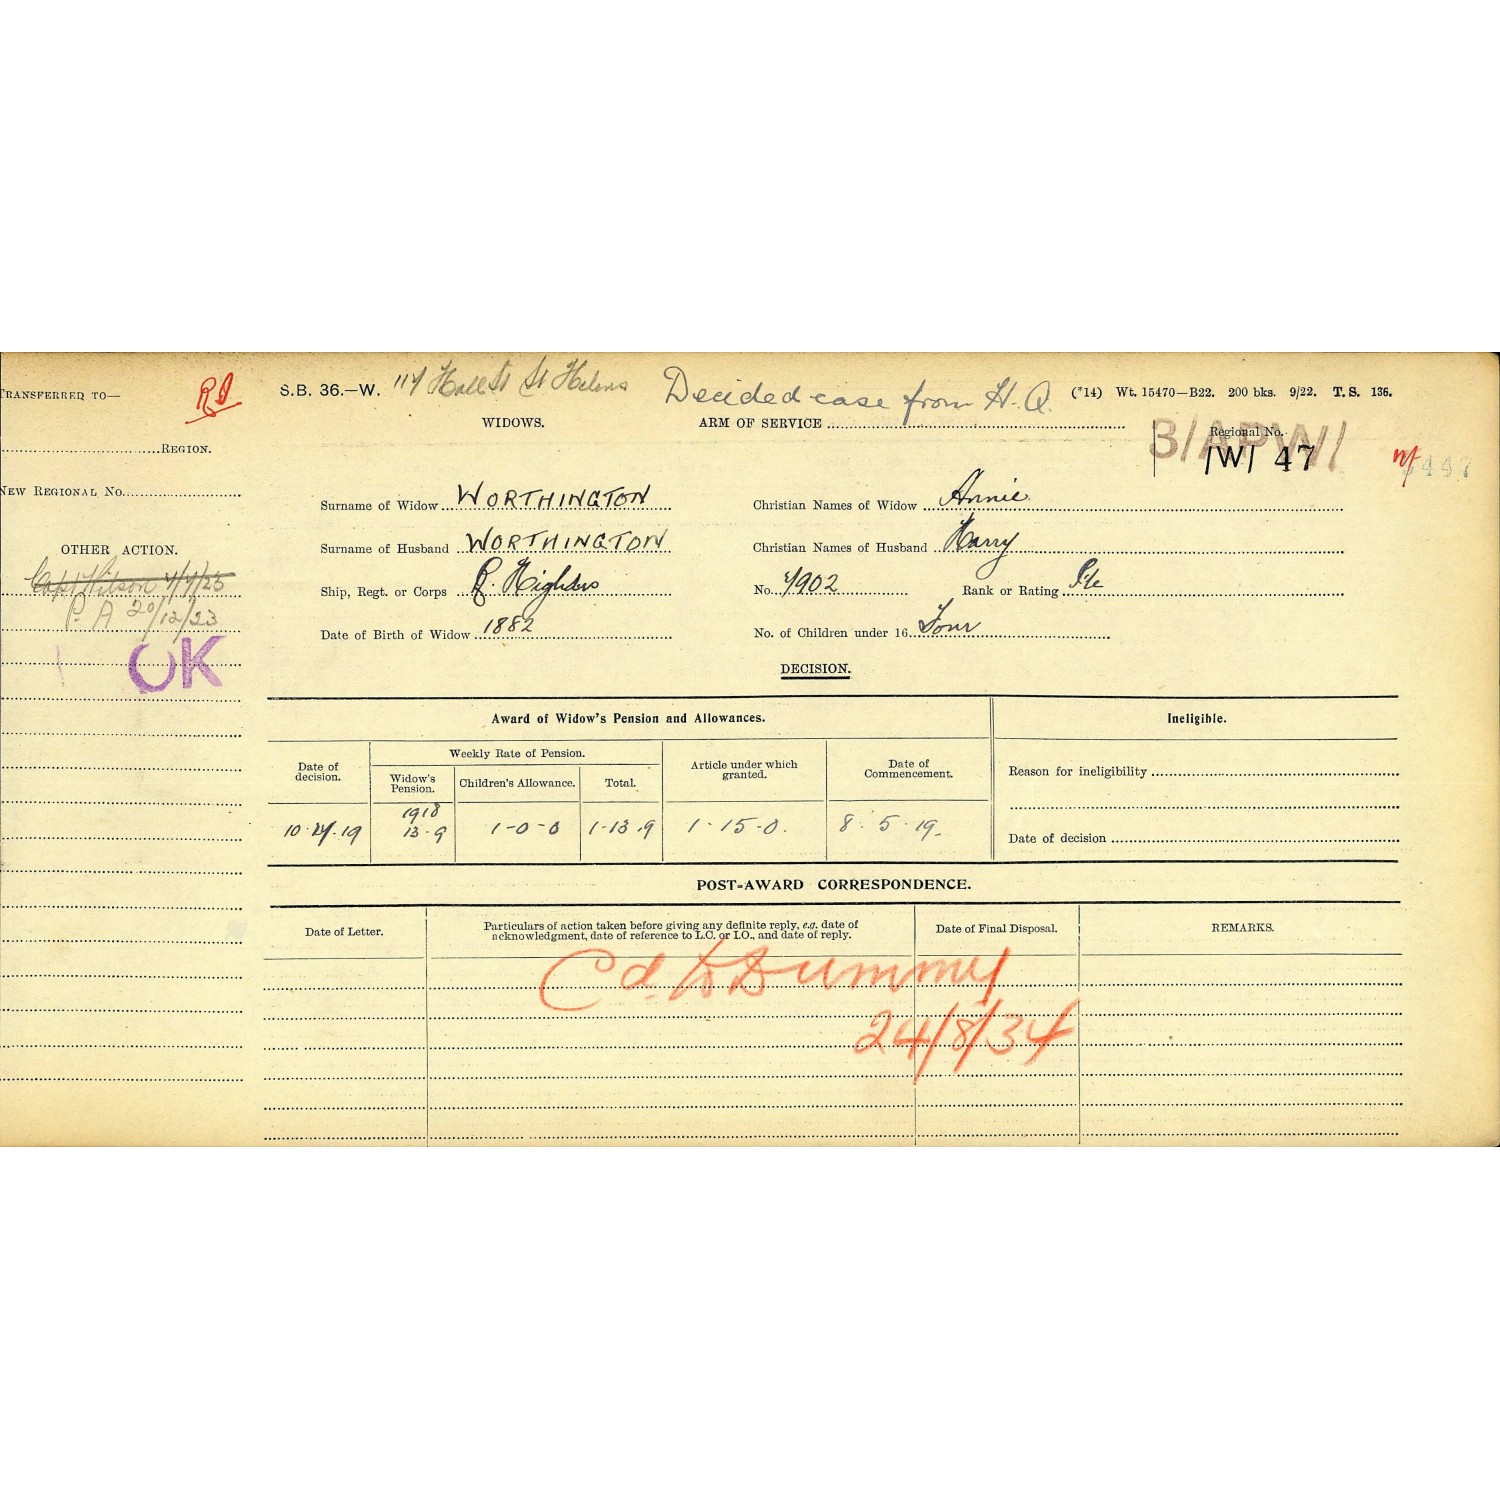 TRANSFERRED TO—
RD
REGION.
NEW REGIONAL No.
OTHER ACTION.
Capt Wilson 4/4/23
P. A 20/12/23
OK
S.B. 36.—W.
Hall St St Helens
Decided case from H.Q.
(*14) Wt. 15470—B22. 200 bks. 9/22. T.S. 136.
WIDOWS.
ARM OF SERVICE
Regional No.
3/APW/
/W/ 47
Surname of Widow WORTHINGTON
Christian Names of Widow Annie
Surname of Husband WORTHINGTON
Christian Names of Husband Harry
Ship, Regt. or Corps
No.
Rank or Rating Pte
Date of Birth of Widow 1882
No. of Children under 16 Four
DECISION.
Award of Widow's Pension and Allowances.
Ineligible.
Date of decision.
Weekly Rate of Pension.
Widow's Pension.
Children's Allowance.
Total.
Article under which granted.
Date of Commencement.
Reason for ineligibility
1918
13-9
1-0-0
1-13.9
1-15-0.
8.5.19.
Date of decision
POST-AWARD CORRESPONDENCE.
Date of Letter.
Particulars of action taken before giving any definite reply, e.g. date of
acknowledgment, date of reference to L.C. or I.O., and date of reply.
Date of Final Disposal.
REMARKS.
Cd. to Dummy
24/8/34